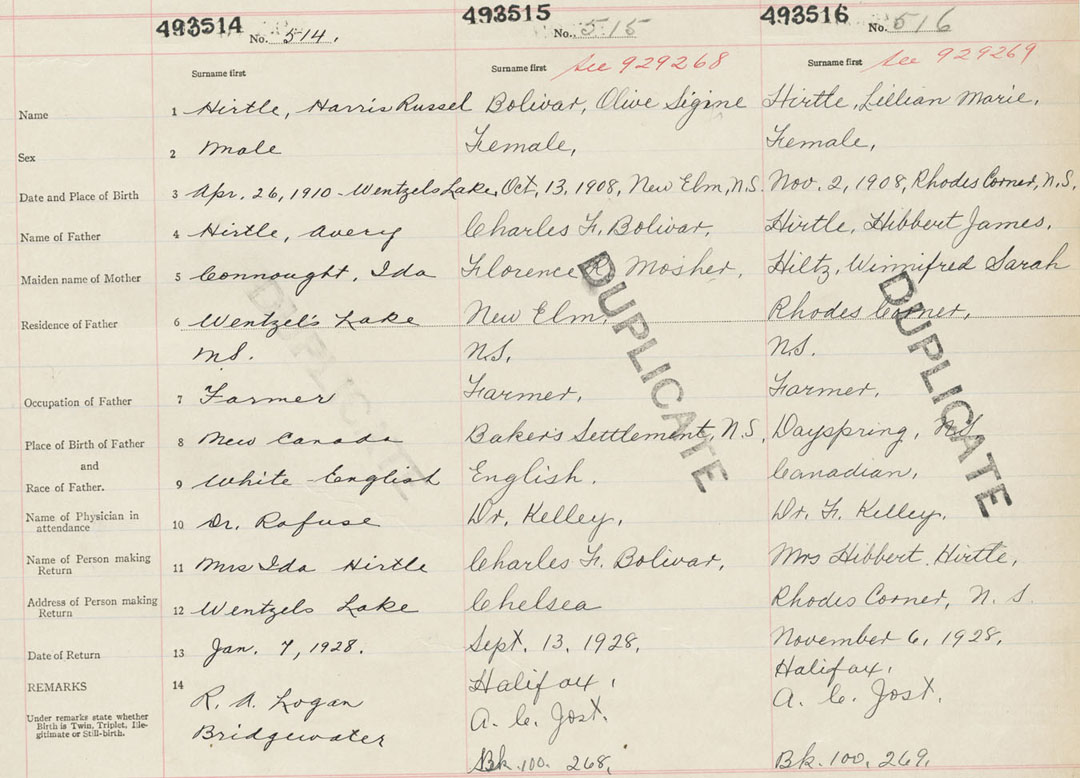 493514 No. 514. 493515 No. 515 493516 No. 516
Surname first Surname first See 929268 Surname first See 929269
Name 1 Hirtle, Harris Russel Bolivar, Olive Sigine Hirtle, Lillian Marie,
Sex 2 Male Female, Female,
Date and Place of Birth 3 Apr. 26, 1910 - Wentzels Lake, Oct. 13. 1908, New Elm, N.S. Nov. 2, 1908, Rhodes Corner, N.S.
Name of Father 4 Hirtle, Avery Charles F. Bolivar, Hirtle, Hibbert James,
Maiden name of Mother 5 Connought, Ida Florence Mosher, Hiltz, Winnifred Sarah
Residence of Father 6 Wentzel's Lake New Elm, Rhodes Corner,
N.S. N.S. N.S.
Occupation of Father 7 Farmer Farmer, Farmer,
Place of Birth of Father 8 New Canada Bakers Settlement, N.S, Dayspring,
and
Race of Father. 9 White English English. Canadian,
Name of Physician in attendance 10 Dr. Rafuse Dr. Kelley, Dr. F. Kelley,
Name of Person making Return 11 Mrs Ida Hirtle Charles F. Bolivar, Mrs Hibbert Hirtle,
Address of Person making Return 12 Wentzels Lake Chelsea Rhodes Corner, N. S.
Date of Return 13 Jan. 7, 1928. Sept. 13. 1928, November 6, 1928,
REMARKS 14 R. A. Logan Halifax, Halifax,
Under remarks state whether Birth is Twin, Triplet, Ille-gitimate or Still-birth. Bridgewater A. C. Jost. A. C. Jost.
Bk. 100. 268, Bk. 100. 269,
DUPLICATE DUPLICATE DUPLICATE